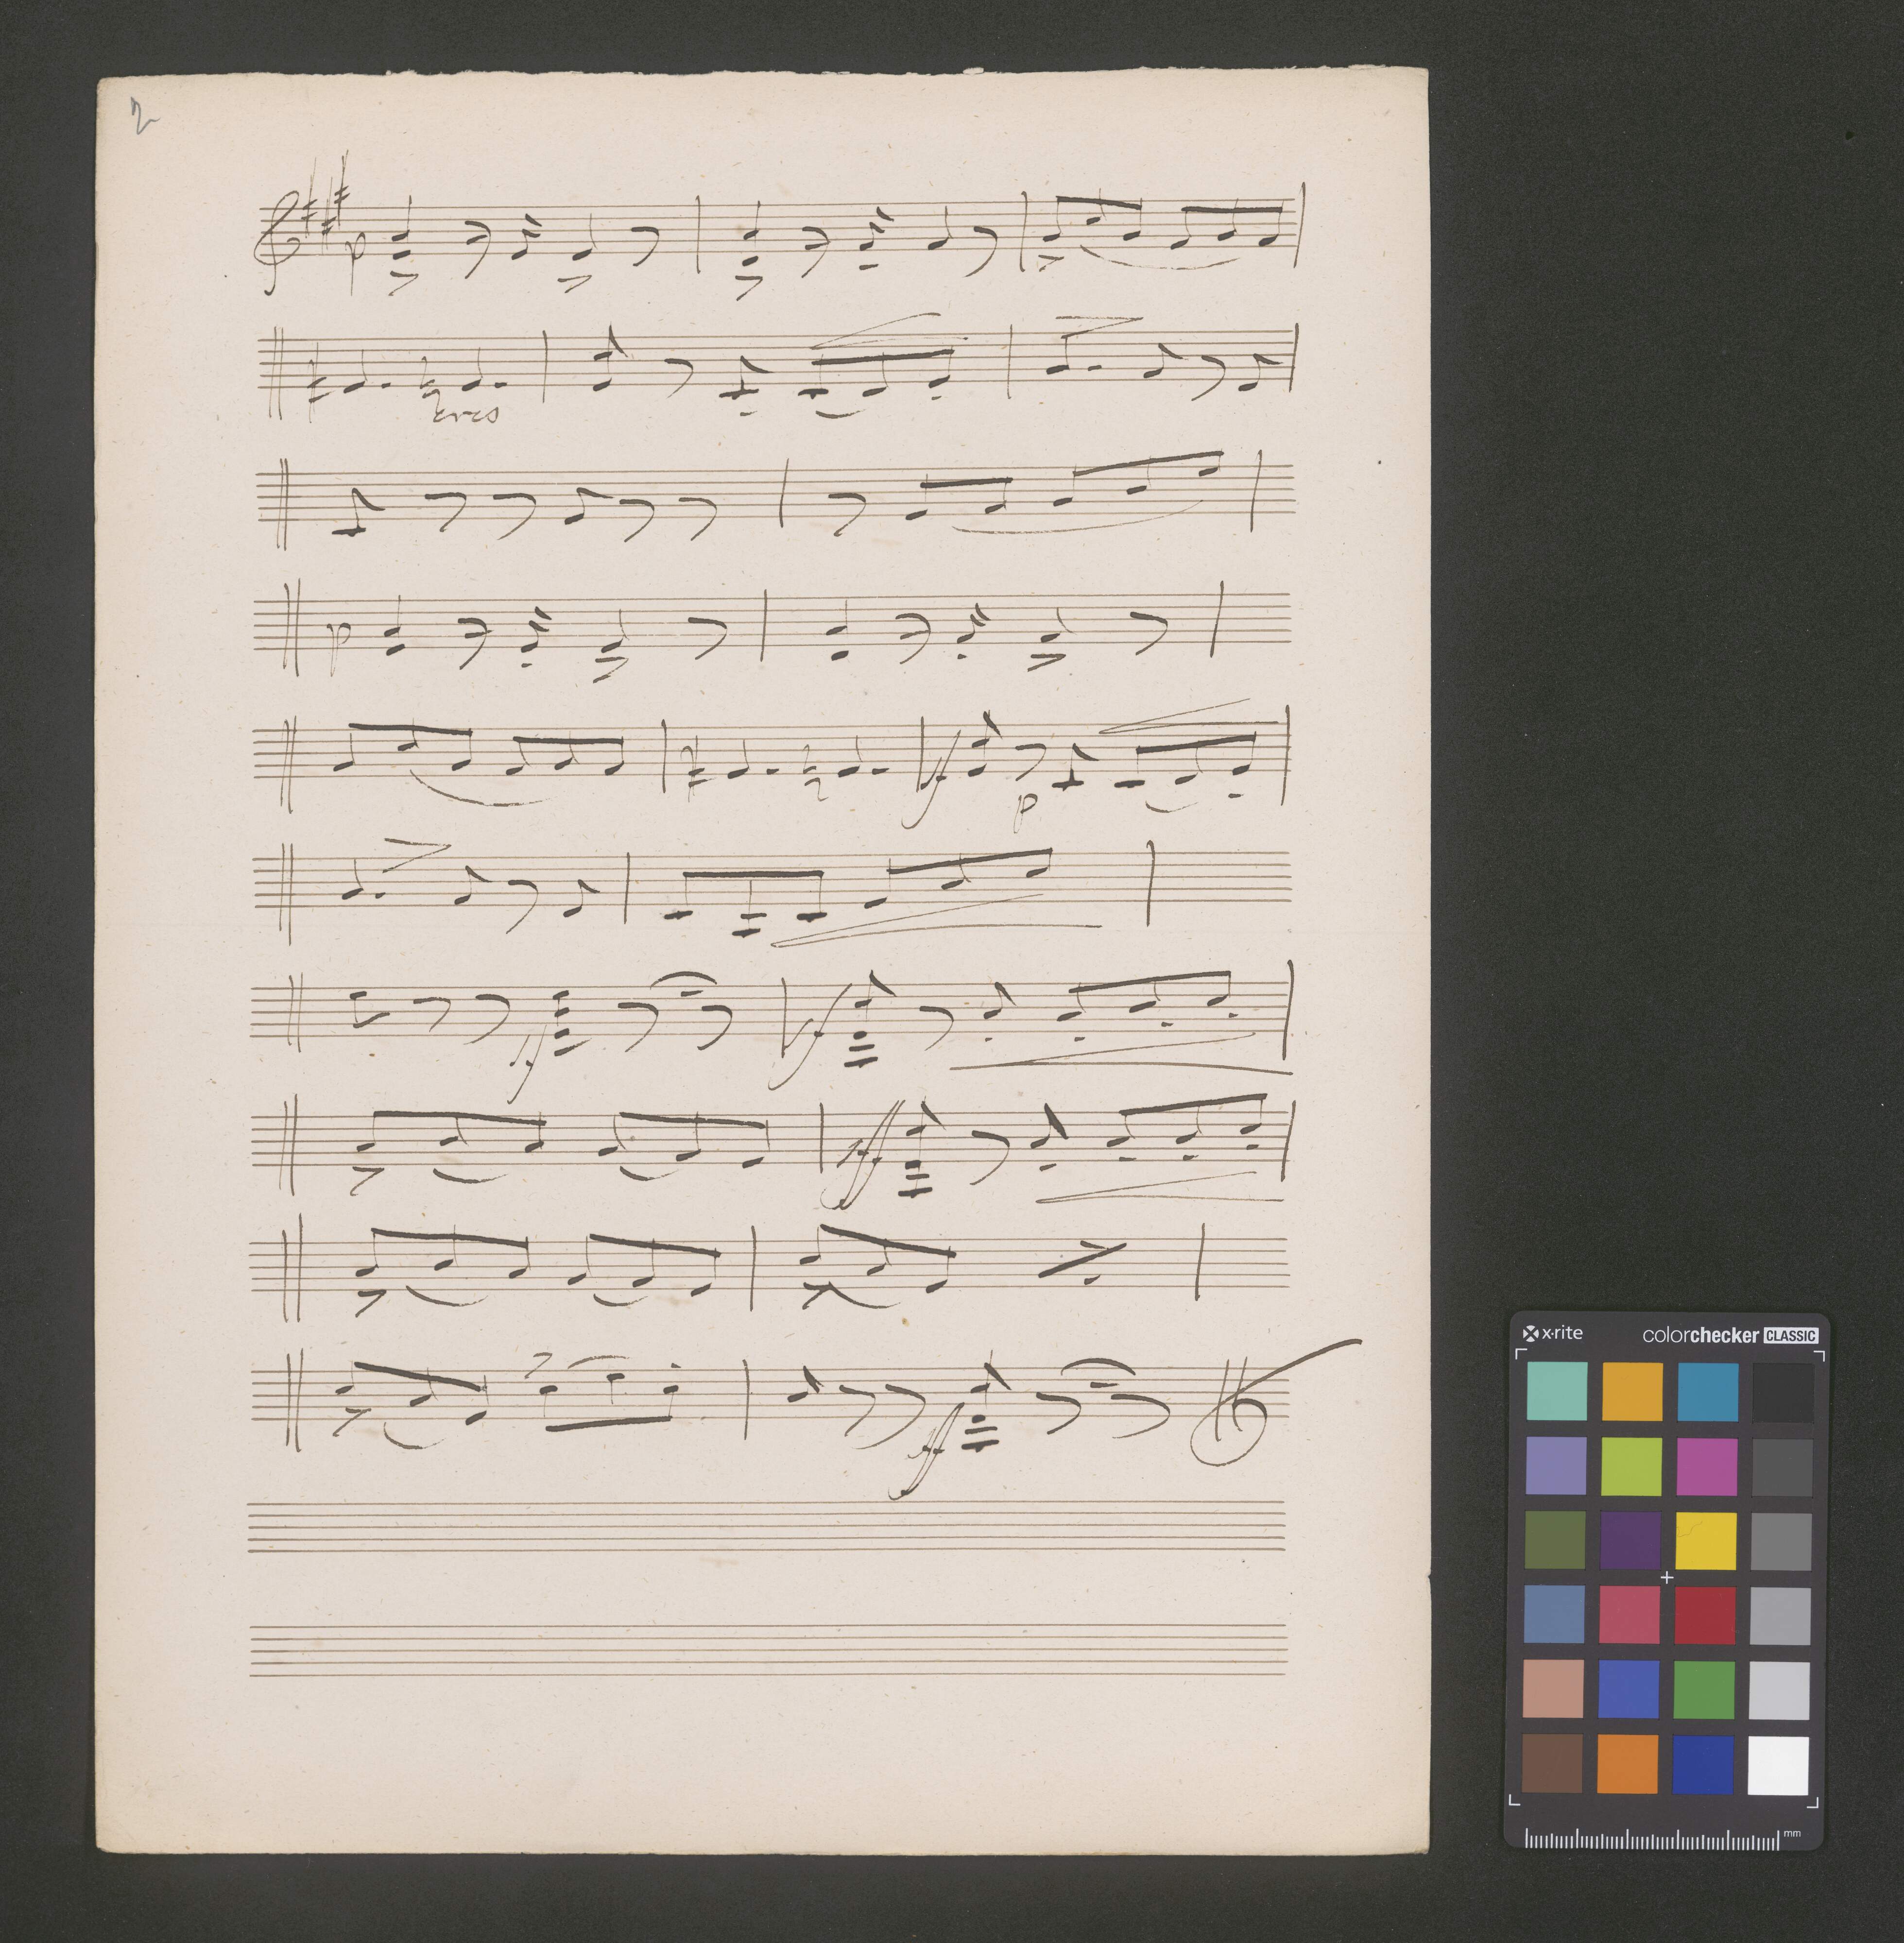 2
p
cres
p
f p
ff ff
fff
ff
x-rite colorchecker CLASSIC
mm